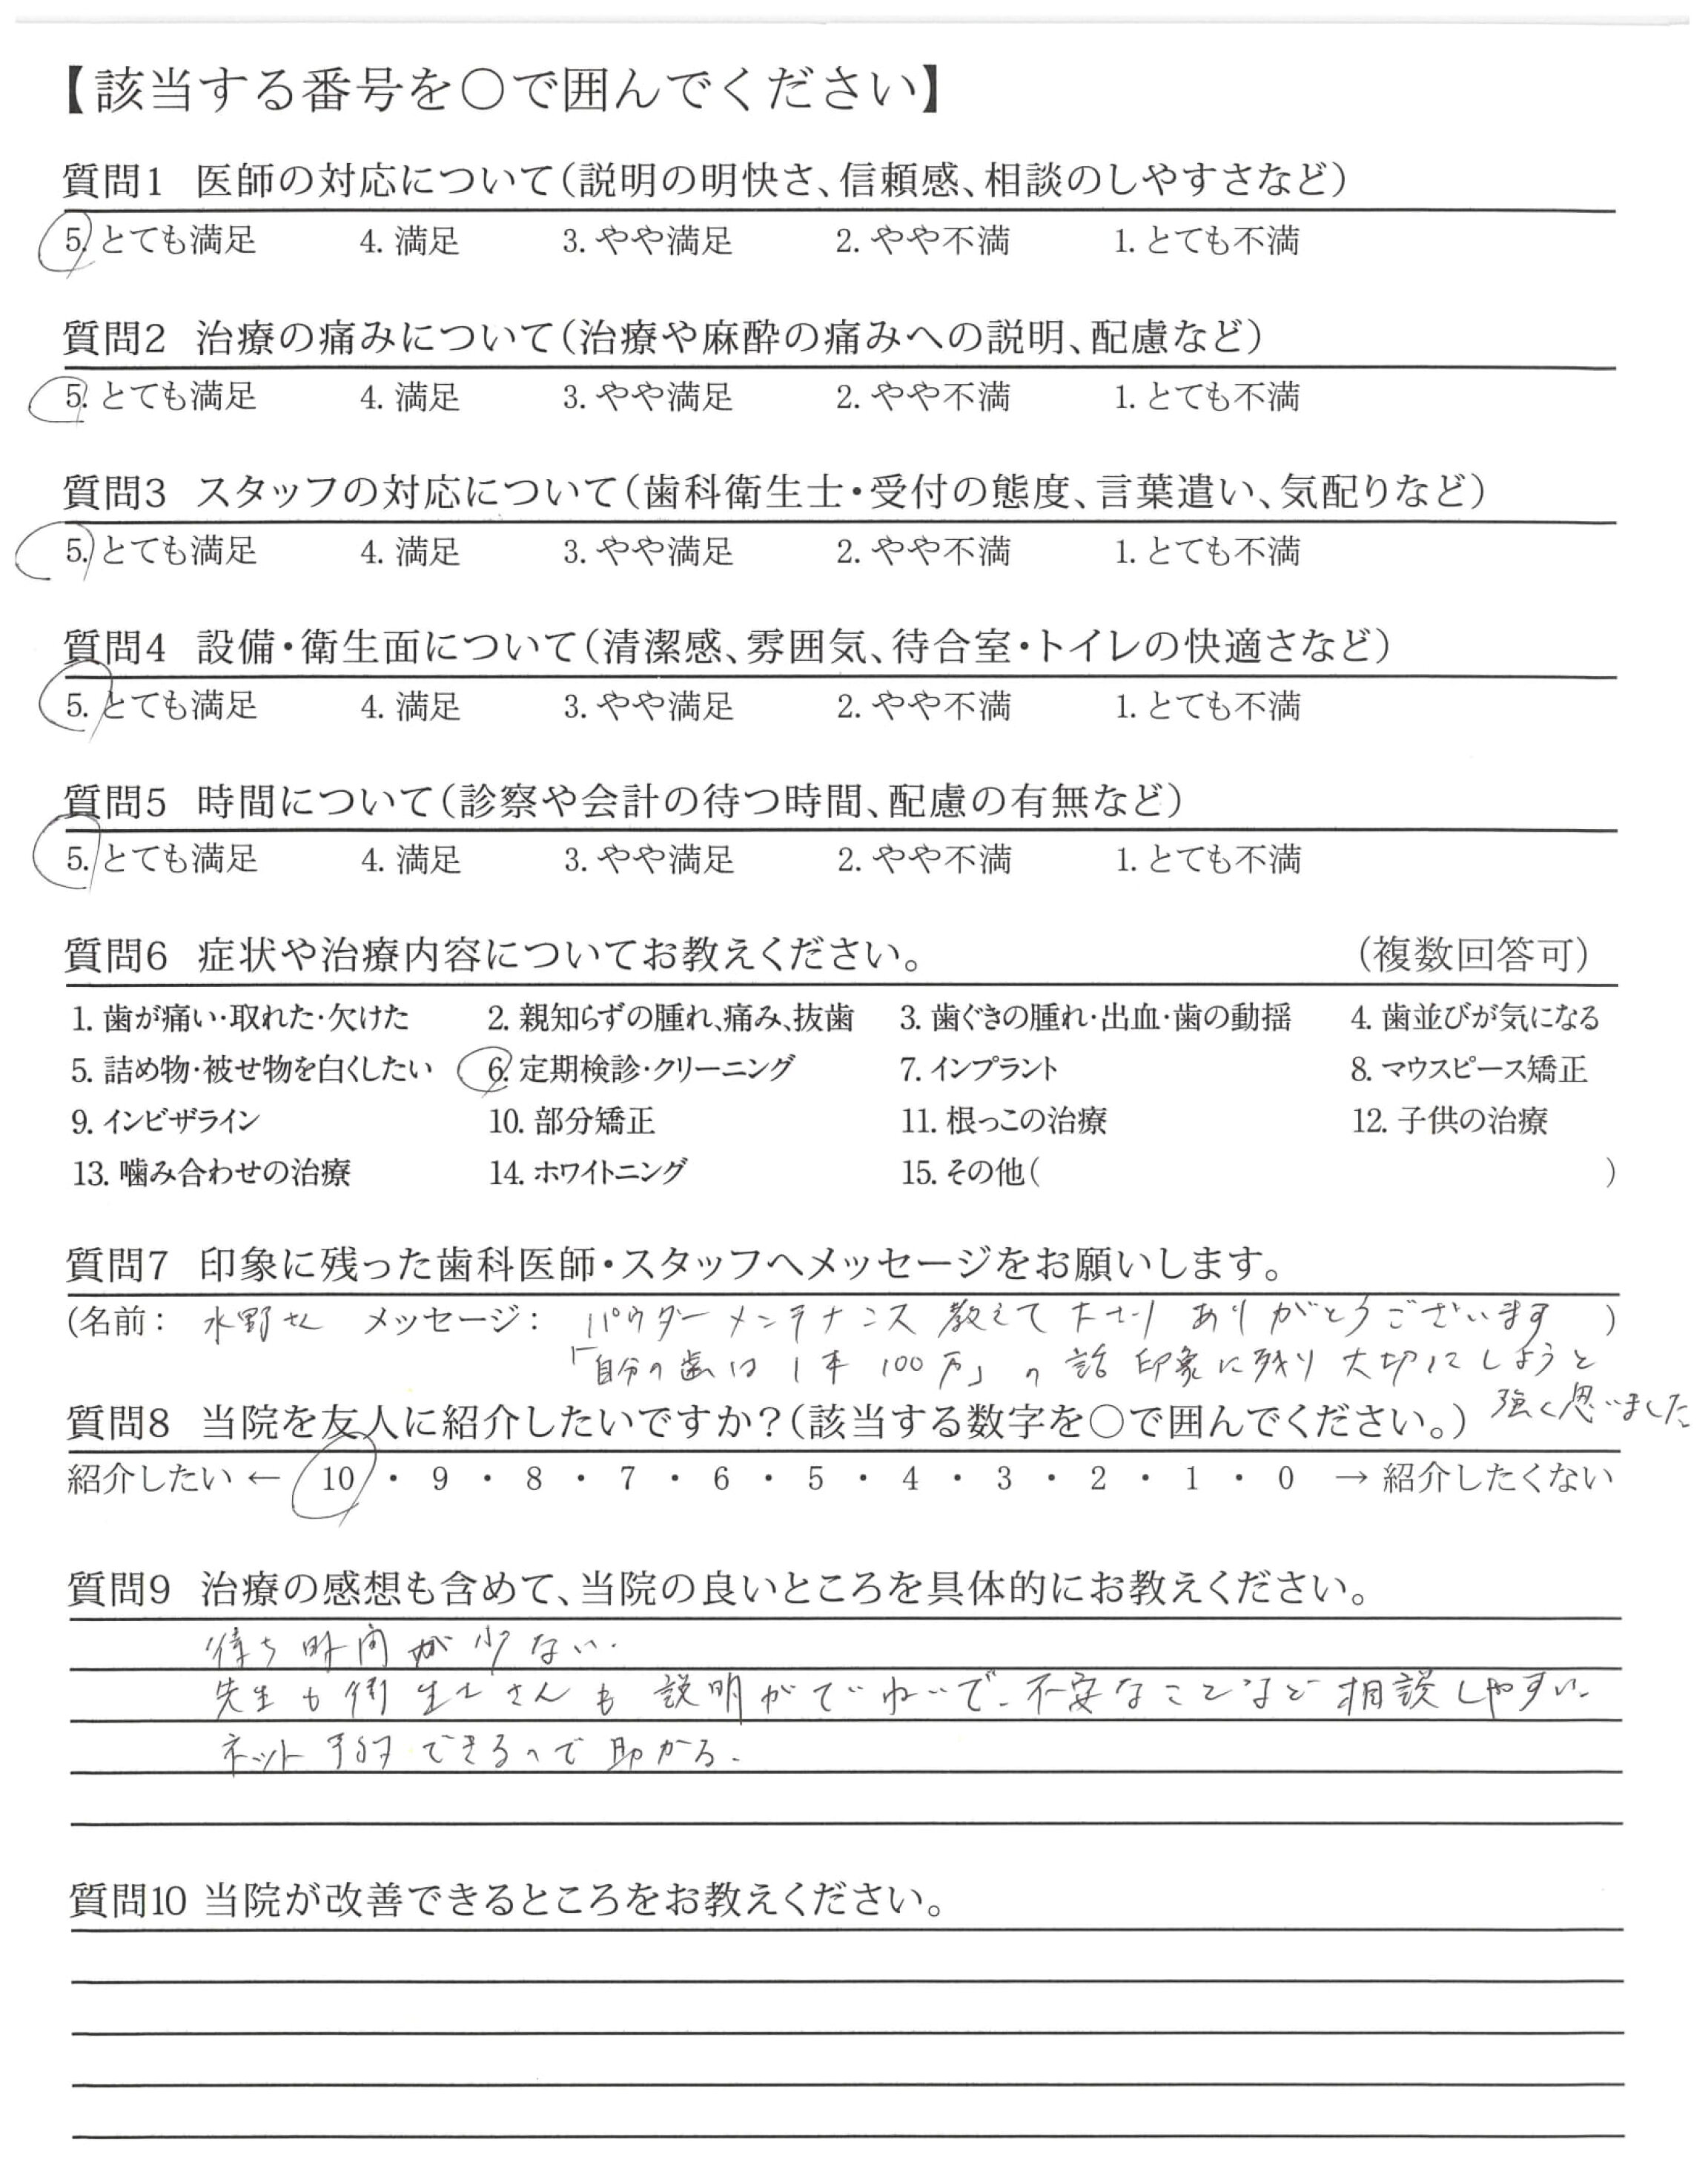 【該当する番号を○で囲んでください】
質問1 医師の対応について(説明の明快さ、信頼感、相談のしやすさなど)
5. とても満足 4. 満足 3. やや満足 2. やや不満 1. とても不満
質問2 治療の痛みについて(治療や麻酔の痛みへの説明、配慮など)
5. とても満足 4. 満足 3. やや満足 2. やや不満 1. とても不満
質問3 スタッフの対応について(歯科衛生士・受付の態度、言葉遣い、気配りなど)
5. とても満足 4. 満足 3. やや満足 2. やや不満 1. とても不満
質問4 設備・衛生面について(清潔感、雰囲気、待合室・トイレの快適さなど)
5. とても満足 4. 満足 3. やや満足 2. やや不満 1. とても不満
質問5 時間について(診察や会計の待つ時間、配慮の有無など)
5. とても満足 4. 満足 3. やや満足 2. やや不満 1. とても不満
質問6 症状や治療内容についてお教えください。 (複数回答可)
1. 歯が痛い・取れた・欠けた 2. 親知らずの腫れ、痛み、抜歯 3. 歯ぐきの腫れ・出血・歯の動揺 4. 歯並びが気になる
5. 詰め物・被せ物を白くしたい 6. 定期検診・クリーニング 7. インプラント 8. マウスピース矯正
9. インビザライン 10. 部分矯正 11. 根っこの治療 12. 子供の治療
13. 噛み合わせの治療 14. ホワイトニング 15. その他( )
質問7 印象に残った歯科医師・スタッフへメッセージをお願いします。
(名前: 水野さん メッセージ: パウダーメンテナンス 教えて下さり ありがとうございます )
「自分の歯は1本100万」の話 印象に残り 大切にしようと
強く思いました
質問8 当院を友人に紹介したいですか?(該当する数字を○で囲んでください。)
紹介したい ← 10 ・ 9 ・ 8 ・ 7 ・ 6 ・ 5 ・ 4 ・ 3 ・ 2 ・ 1 ・ 0 → 紹介したくない
質問9 治療の感想も含めて、当院の良いところを具体的にお教えください。
待ち時間が少ない.
先生も衛生士さんも 説明がていねいで、不安なことなど 相談しやすい.
ネット予約できるので助かる.
質問10 当院が改善できるところをお教えください。